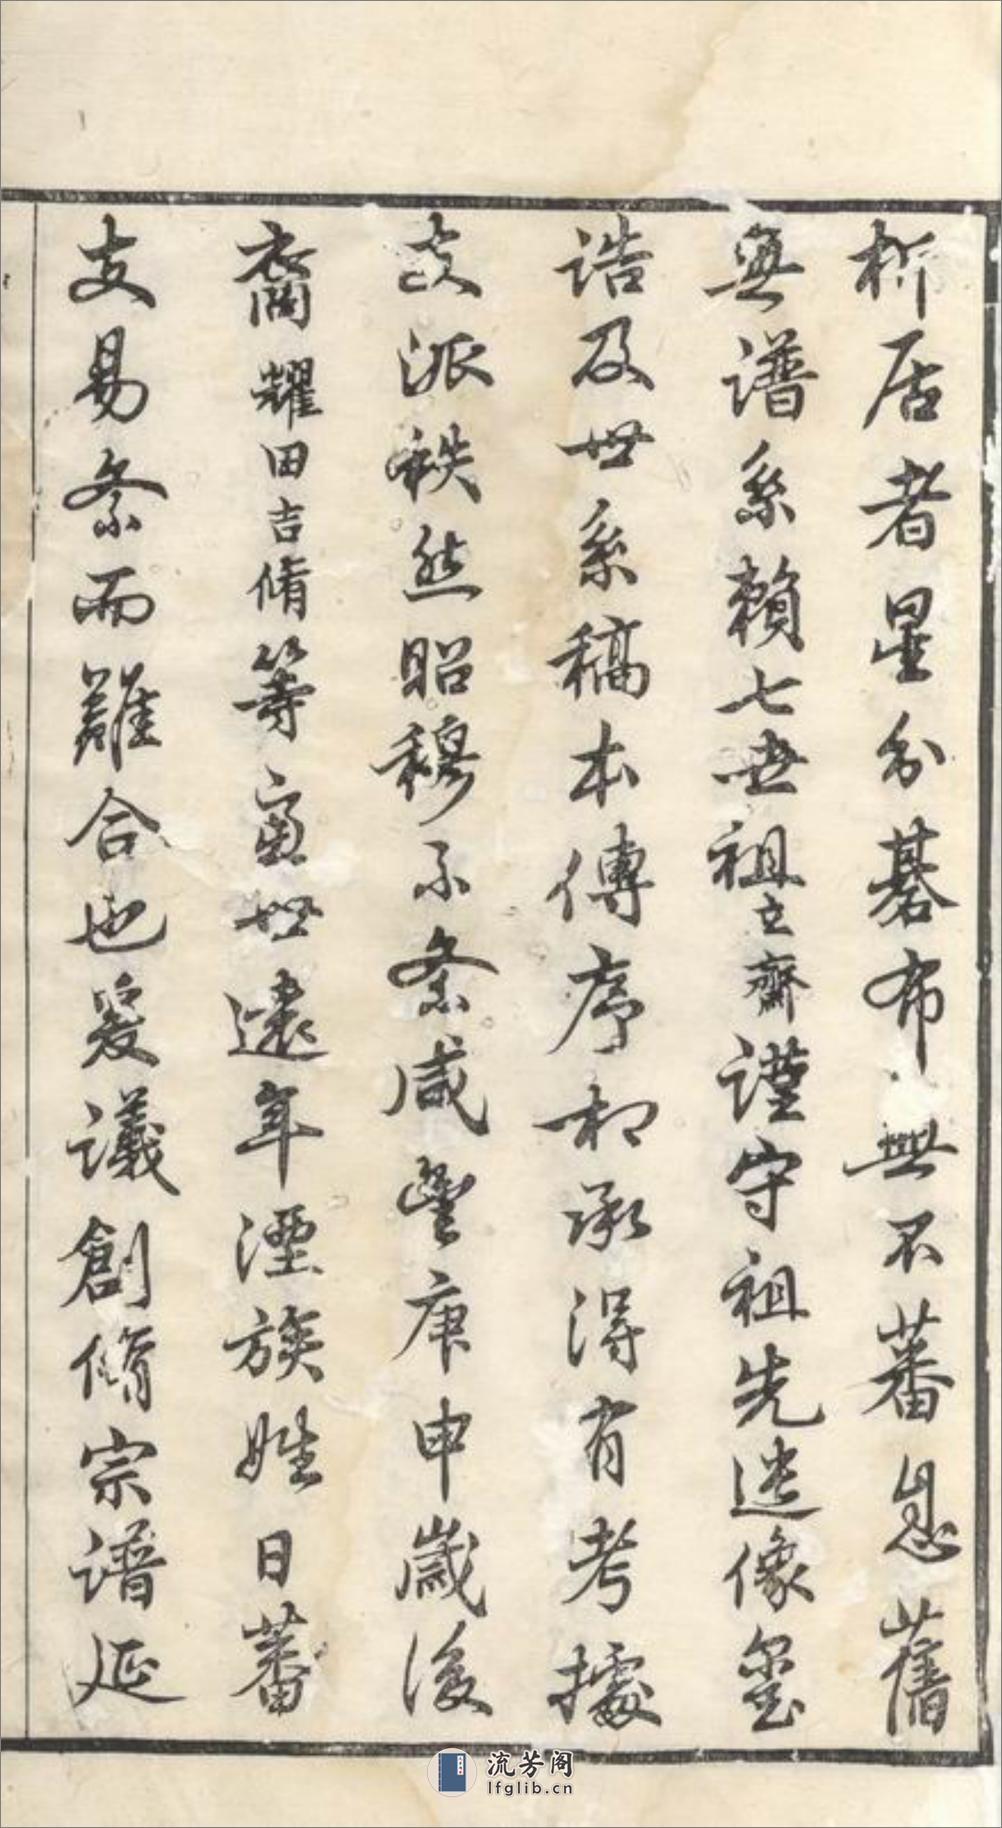 析居者星分碁布無不蕃息舊
無譜系賴七世祖立齋謹守祖先遺像璽
誥及世系稿本傳序相承得有考據
支派秩然昭穆不紊咸豐庚申歲後
裔耀田吉脩等寅世遠年湮族姓日蕃
支易紊而難合也爰議創脩宗譜延
流芳阁
lfglib.cn